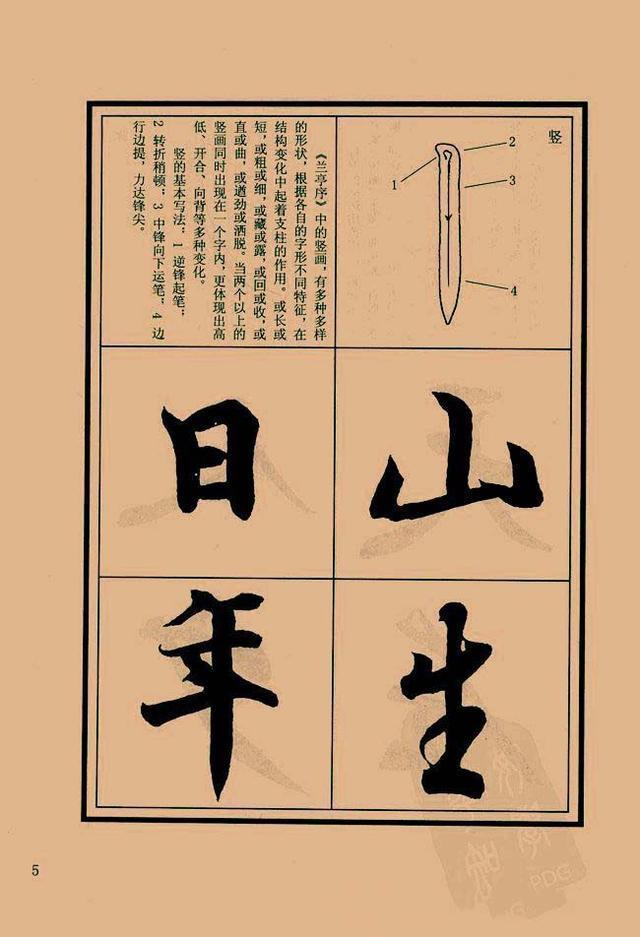 竖
1
2
3
4
《兰亭序》中的竖画,有多种多样
的形状,根据各自的字形不同特征,在
结构变化中起着支柱的作用。或长或
短,或粗或细,或藏或露,或回或收,或
直或曲,或遒劲或洒脱。当两个以上的
竖画同时出现在一个字内,更体现出高
低、开合、向背等多种变化。
竖的基本写法:1 逆锋起笔;
2 转折稍顿;3 中锋向下运笔;4 边
行边提,力达锋尖。
山
生
日
年
5
PDG